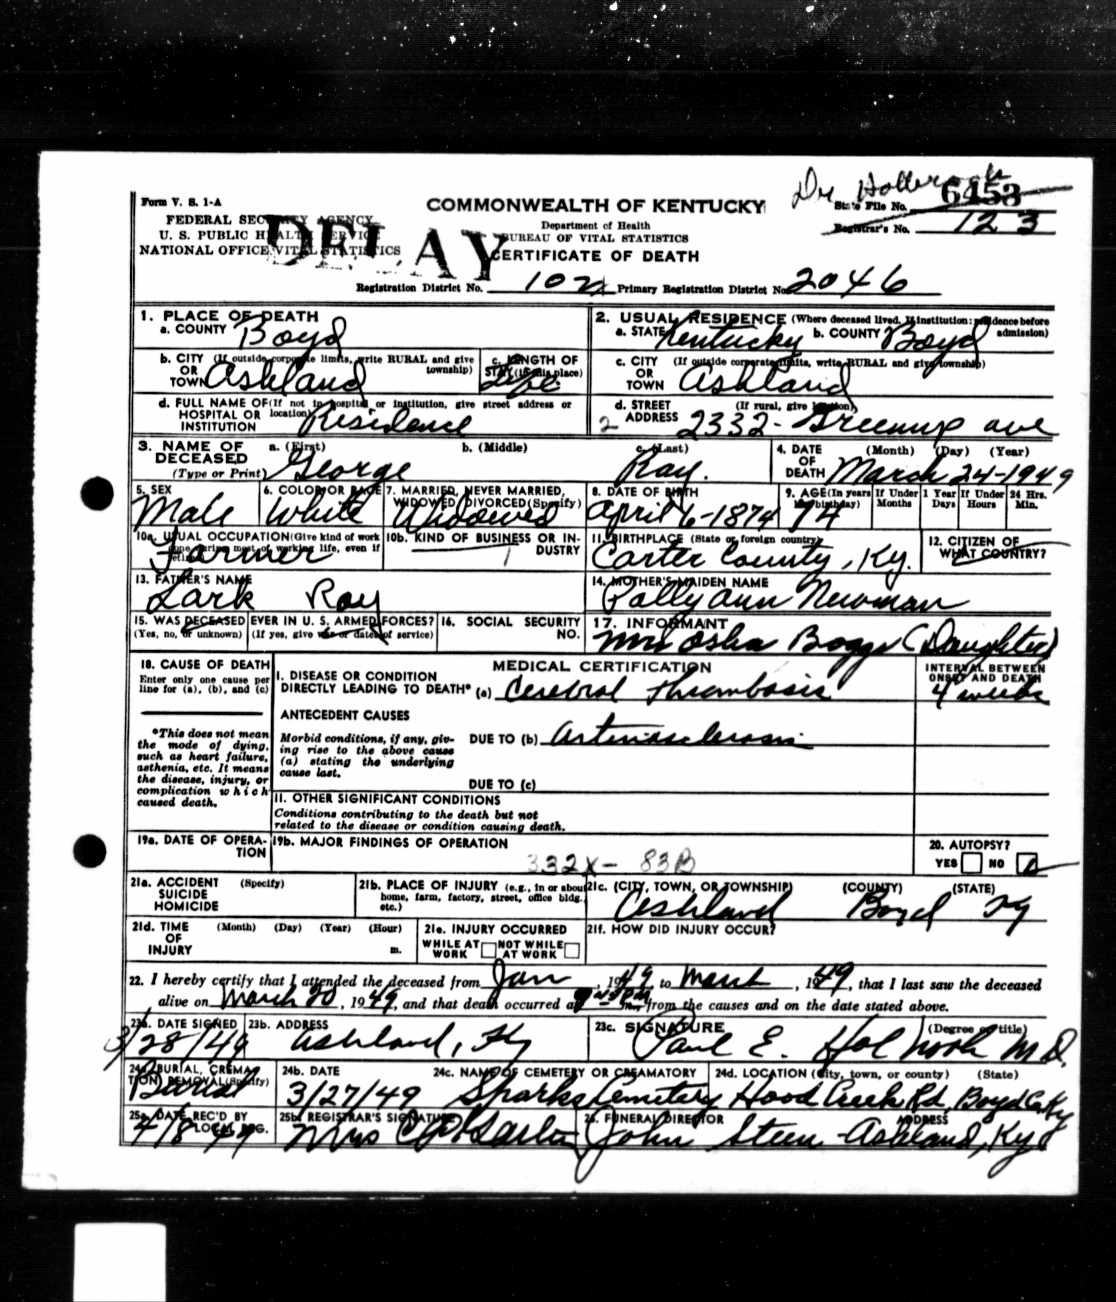 Dr Holbrook
Form V. S. 1-A
COMMONWEALTH OF KENTUCKY
State File No. 6453
FEDERAL SECURITY AGENCY
U. S. PUBLIC HEALTH SERVICE
NATIONAL OFFICE VITAL STATISTICS
DELAY
Department of Health
BUREAU OF VITAL STATISTICS
CERTIFICATE OF DEATH
Registrar's No. 123
Registration District No. 102 Primary Registration District No. 2046
1. PLACE OF DEATH
a. COUNTY Boyd
2. USUAL RESIDENCE (Where deceased lived. If institution: residence before admission)
a. STATE Kentucky b. COUNTY Boyd
b. CITY (If outside corporate limits, write RURAL and give township)
OR
TOWN Ashland
c. LENGTH OF
STAY (in this place)
Life
c. CITY (If outside corporate limits, write RURAL and give township)
OR
TOWN Ashland
d. FULL NAME OF (If not in hospital or institution, give street address or location)
HOSPITAL OR
INSTITUTION Residence
d. STREET (If rural, give location)
ADDRESS 2332- Greenup ave
2
3. NAME OF DECEASED
(Type or Print)
a. (First) George
b. (Middle)
c. (Last) Ray.
4. DATE OF DEATH (Month) (Day) (Year)
March 24-1949
5. SEX
Male
6. COLOR OR RACE
White
7. MARRIED, NEVER MARRIED, WIDOWED, DIVORCED (Specify)
Widowed
8. DATE OF BIRTH
April 6-1874
9. AGE (In years last birthday)
74
If Under 1 Year
Months Days
If Under 24 Hrs.
Hours Min.
10a. USUAL OCCUPATION (Give kind of work done during most of working life, even if retired)
Farmer
10b. KIND OF BUSINESS OR INDUSTRY
11. BIRTHPLACE (State or foreign country)
Carter County, Ky.
12. CITIZEN OF
WHAT COUNTRY?
13. FATHER'S NAME
Lark Ray
14. MOTHER'S MAIDEN NAME
Polly Ann Newman
15. WAS DECEASED EVER IN U. S. ARMED FORCES?
(Yes, no, or unknown) (If yes, give war or dates of service)
16. SOCIAL SECURITY
NO.
17. INFORMANT
Mrs Osha Boggs (Daughter)
18. CAUSE OF DEATH
Enter only one cause per
line for (a), (b), and (c)
*This does not mean
the mode of dying,
such as heart failure,
asthenia, etc. It means
the disease, injury, or
complication which
caused death.
MEDICAL CERTIFICATION
INTERVAL BETWEEN
ONSET AND DEATH
I. DISEASE OR CONDITION
DIRECTLY LEADING TO DEATH* (a) Cerebral Thrombosis
4 weeks
ANTECEDENT CAUSES
Morbid conditions, if any, giving rise to the above cause (a) stating the underlying cause last.
DUE TO (b) Arteriosclerosis
DUE TO (c)
II. OTHER SIGNIFICANT CONDITIONS
Conditions contributing to the death but not
related to the disease or condition causing death.
19a. DATE OF OPERATION
19b. MAJOR FINDINGS OF OPERATION
332X- 83B
20. AUTOPSY?
YES NO
21a. ACCIDENT (Specify)
SUICIDE
HOMICIDE
21b. PLACE OF INJURY (e.g., in or about
home, farm, factory, street, office bldg.,
etc.)
21c. (CITY, TOWN, OR TOWNSHIP) (COUNTY) (STATE)
Ashland Boyd Ky
21d. TIME (Month) (Day) (Year) (Hour)
OF
INJURY m.
21e. INJURY OCCURRED
WHILE AT WORK NOT WHILE AT WORK
21f. HOW DID INJURY OCCUR?
22. I hereby certify that I attended the deceased from Jan, 1949, to March, 1949, that I last saw the deceased
alive on March 20, 1949, and that death occurred at m., from the causes and on the date stated above.
23a. DATE SIGNED
3/28/49
23b. ADDRESS
Ashland, Ky
23c. SIGNATURE (Degree or title)
Paul E. Holbrook M.D.
24a. BURIAL, CREMATION, REMOVAL (Specify)
Burial
24b. DATE
3/27/49
24c. NAME OF CEMETERY OR CREAMATORY
Sparks Cemetery
24d. LOCATION (City, town, or county) (State)
Hood Creek Rd. Boyd Co Ky
25a. DATE REC'D BY
LOCAL REG.
4/8/49
25b. REGISTRAR'S SIGNATURE
Mrs
25. FUNERAL DIRECTOR ADDRESS
John Steen - Ashland, Ky